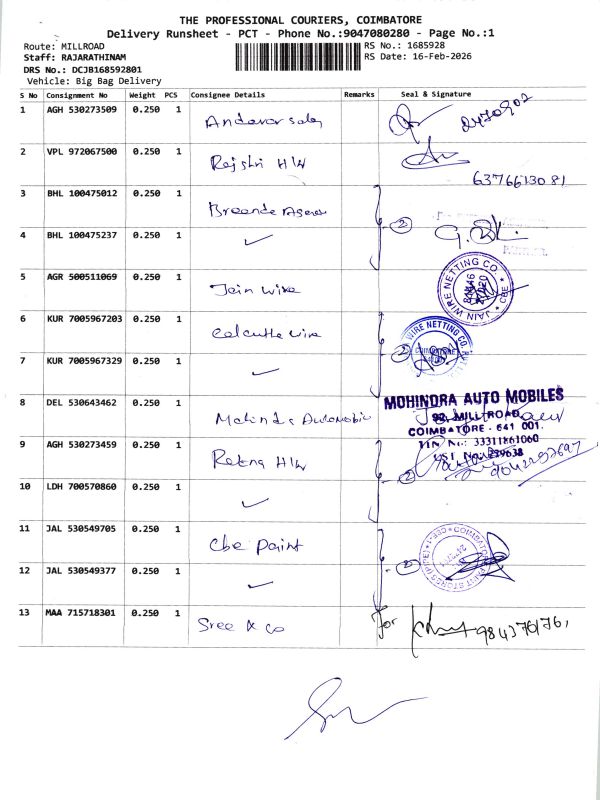 THE PROFESSIONAL COURIERS, COIMBATORE
Delivery Runsheet - PCT - Phone No.:9047080280 - Page No.:1
Route: MILLROAD
RS No.: 1685928
Staff: RAJARATHINAM
RS Date: 16-Feb-2026
DRS No.: DCJB168592801
Vehicle: Big Bag Delivery
S No Consignment No Weight PCS Consignee Details Remarks Seal & Signature
1 AGH 530273509 0.250 1
2 VPL 972067500 0.250 1 Rajshri H/W
6376613081
3 BHL 100475012 0.250 1
2
4 BHL 100475237 0.250 1 ✓
5 AGR 500511069 0.250 1 Jain wire
JAIN WIRE NETTING CO. CBE
6 KUR 7005967203 0.250 1 Calcutta wire
WIRE NETTING CO.
COIMBATORE
2
7 KUR 7005967329 0.250 1 ✓
8 DEL 530643462 0.250 1 Mahindra Automobic
MOHINDRA AUTO MOBILES
92, MILL ROAD,
COIMBATORE - 641 001.
TIN No.: 33311861060
9 AGH 530273459 0.250 1 Ratna H/W
2
10 LDH 700570860 0.250 1 ✓
11 JAL 530549705 0.250 1 Cbe paint
12 JAL 530549377 0.250 1 ✓
2
13 MAA 715718301 0.250 1 Sree & co
for